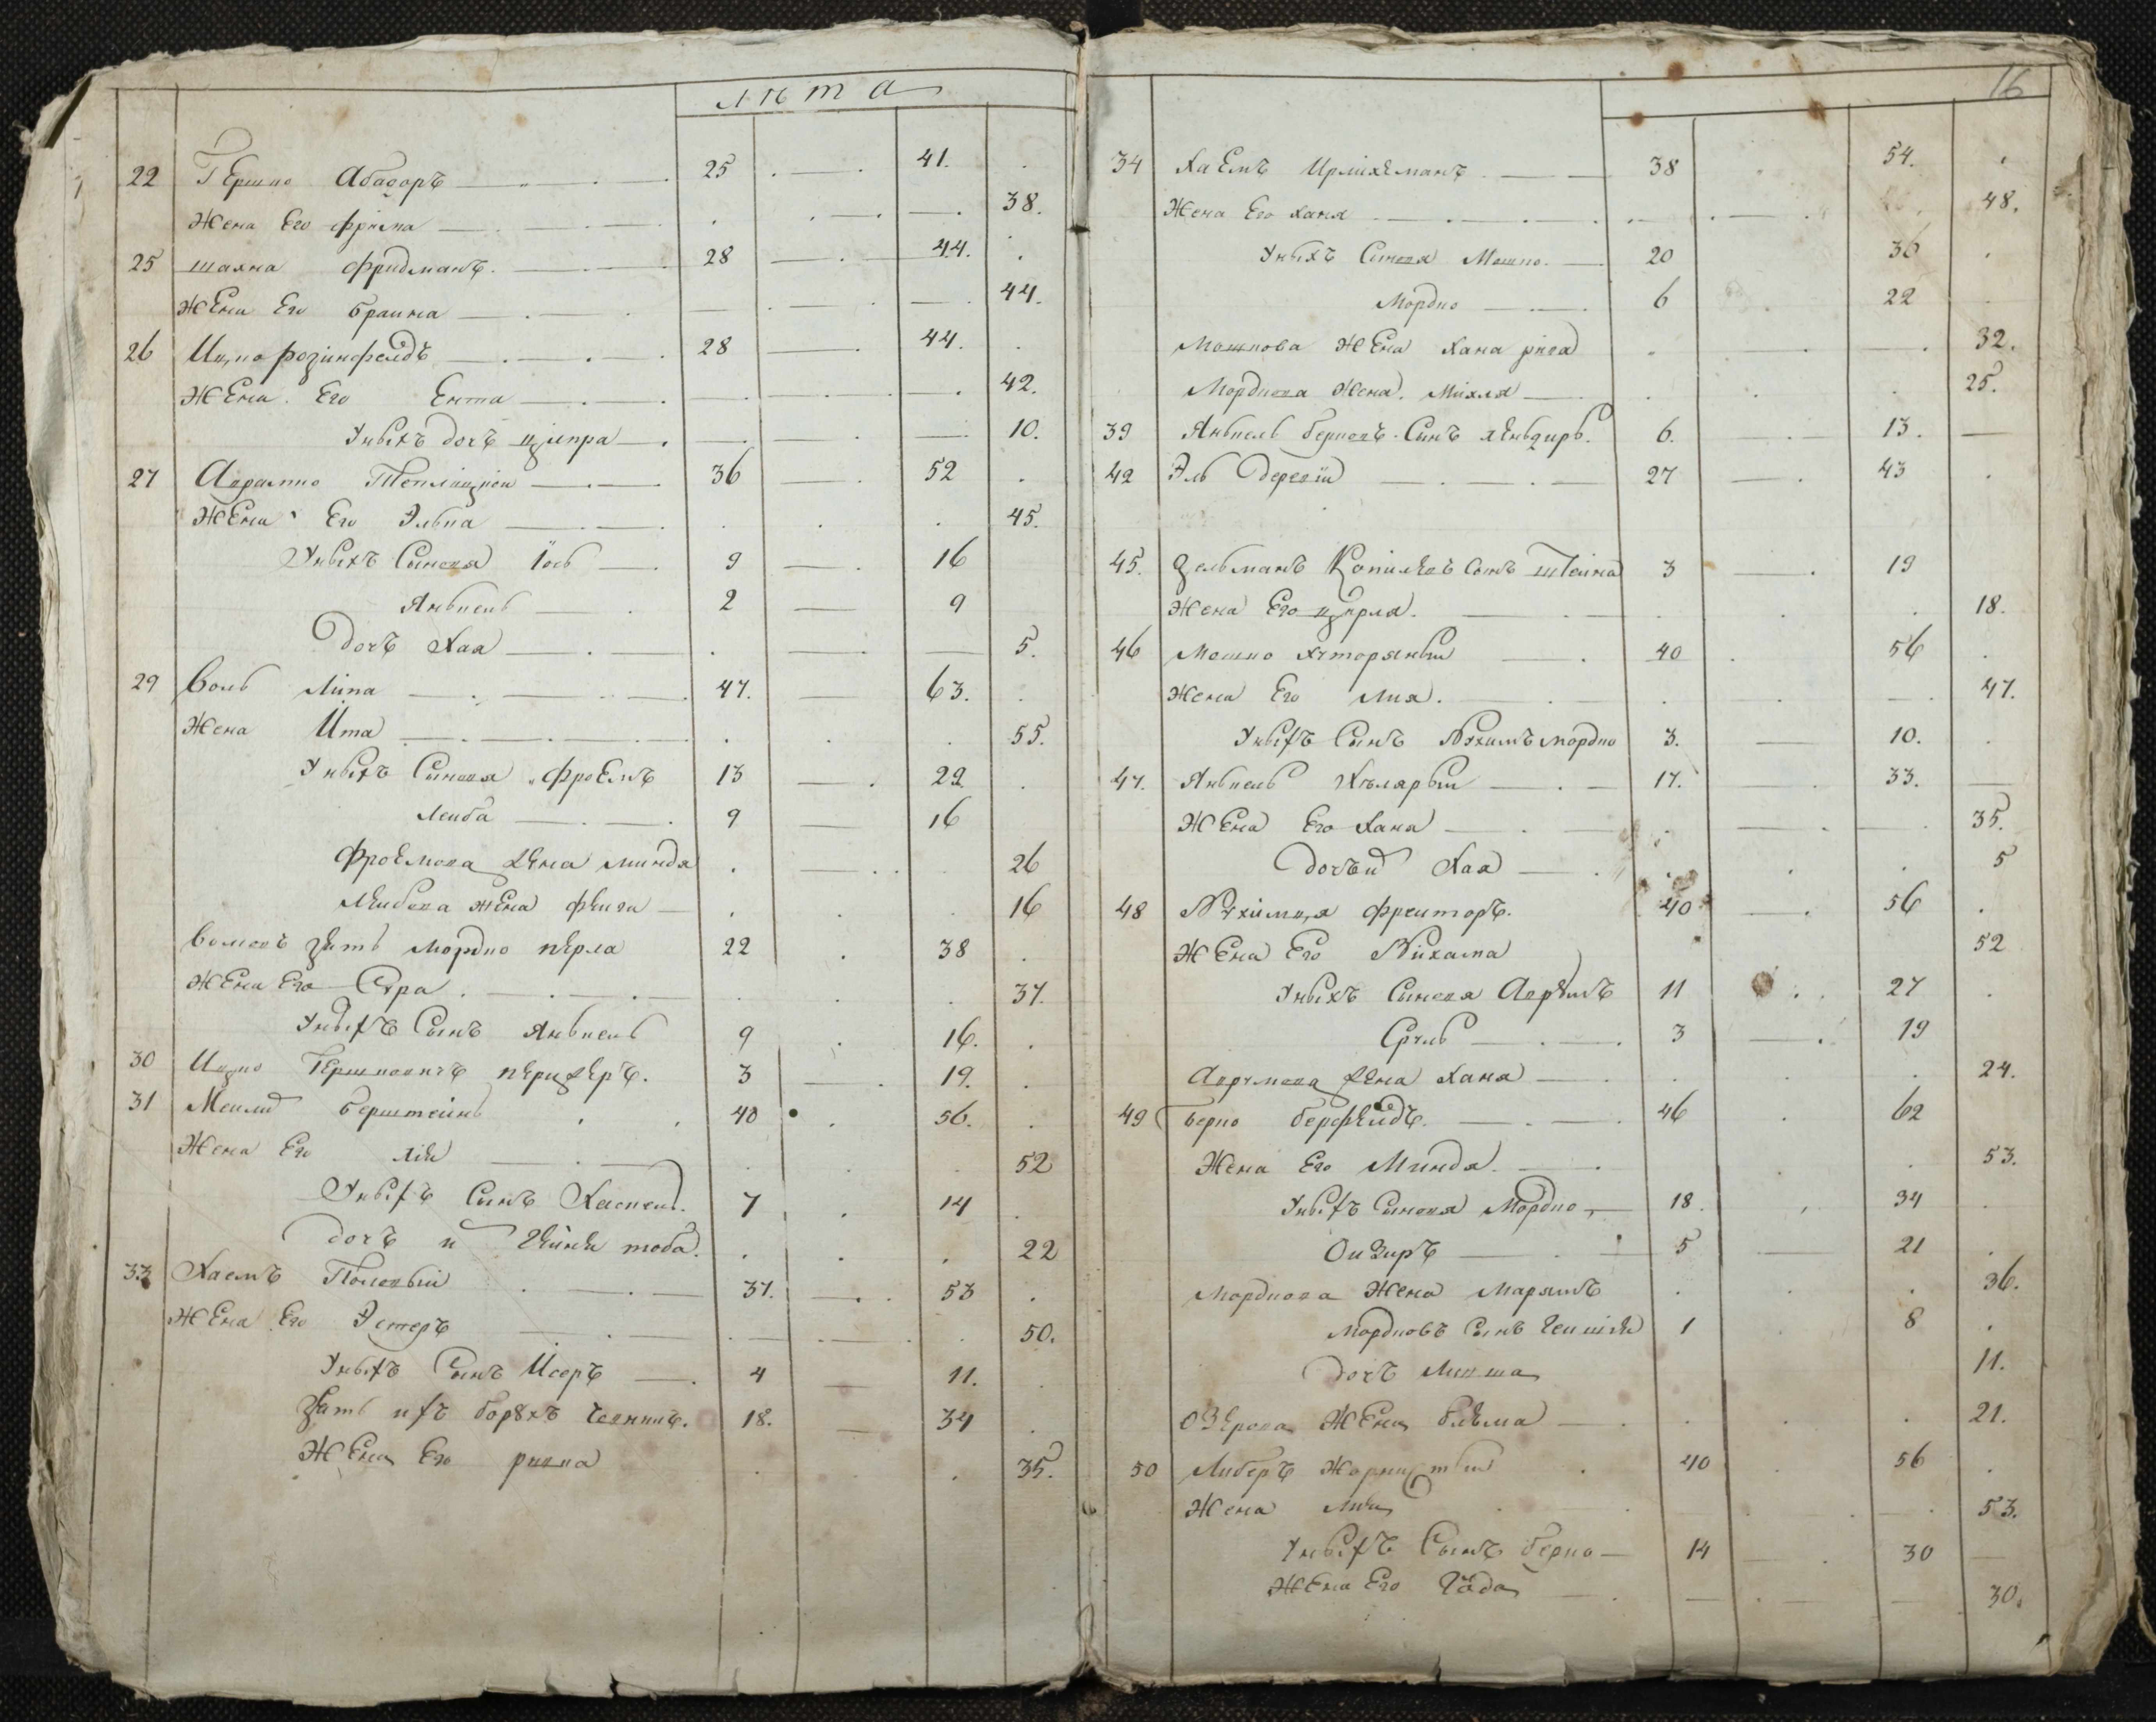 лѣта
22 Гершко Абадоръ 25 41.
Жена Его 38.
25 шахна фридманъ. 28 44.
Жена Его браина 44.
26 Ицко розинфелдъ 28 44.
Жена Его Ента 42.
У ныхъ дочъ ципра 10.
27 Аврамко 36 52
Жена Его Элька 45.
У ныхъ Сыновя Iось 9 16
Янкель 2 9
Дочъ Хая 5.
29 Воль Липа 47. 63.
Жена Ита 55.
У ныхъ Сыновя фроЕмъ 13 29.
Леиба 9 16
фроемова жена миндя 26
Леибова жена феига 16
Волковъ зять мордко перла 22 38
Жена Его Сура 37.
У ныхъ Сынъ Янкель 9 16.
30 Ицко Гершковичъ 3 19.
31 берштеинъ 40 56.
Жена Его лея 52
У ныхъ Сынъ Хаскель. 7 14
дочъ и тоба. 22
33 Хаемъ Полевый 37. 53
Жена Его Эстеръ 50.
У ныхъ Сынъ Исеръ 4 11.
Зять ихъ борухъ 18. 34
Жена Его ривка 35.
16
34 ХаЕмъ 38 54.
Жена Его ханя 48.
У ныхъ Сыновя Мошко. 20 36
Мордко 6 22
Мошкова Жена Хана рива 32.
Мордкова Жена. Михля 25.
39 Янкель берковъ Сынъ 6. 13.
42 Эль 27 43
45. Зельманъ Сынъ штеина 3 19
Жена Его цирля. 18.
46 Мошко хуторяный 40 56
Жена Его Лия. 47.
У ныхъ Сынъ Нухимъ мордко 3. 10.
47. Янкель 17. 33.
Жена Его Хана 35.
дочъ Хая 5
48 Нухимця фреиторъ. 40 56
Жена Его Нихама 52
У ныхъ Сыновя Аврумъ 11 27
Сруль 3 19
Аврумова жена хана 24.
49 берко берфелдъ. 46 62
Жена Его Миндя. 53.
У ныхъ Сыновя Мордко 18. 34
Оизиръ 5 21
Мордкова Жена Марямъ 36.
Мордковъ Сынъ 1 8
дочъ 11.
Озерова Жена блюма 21.
50 Либеръ 40 56
Жена Лия 53.
У ныхъ Сынъ берко 14 30
Жена Его Года 30.